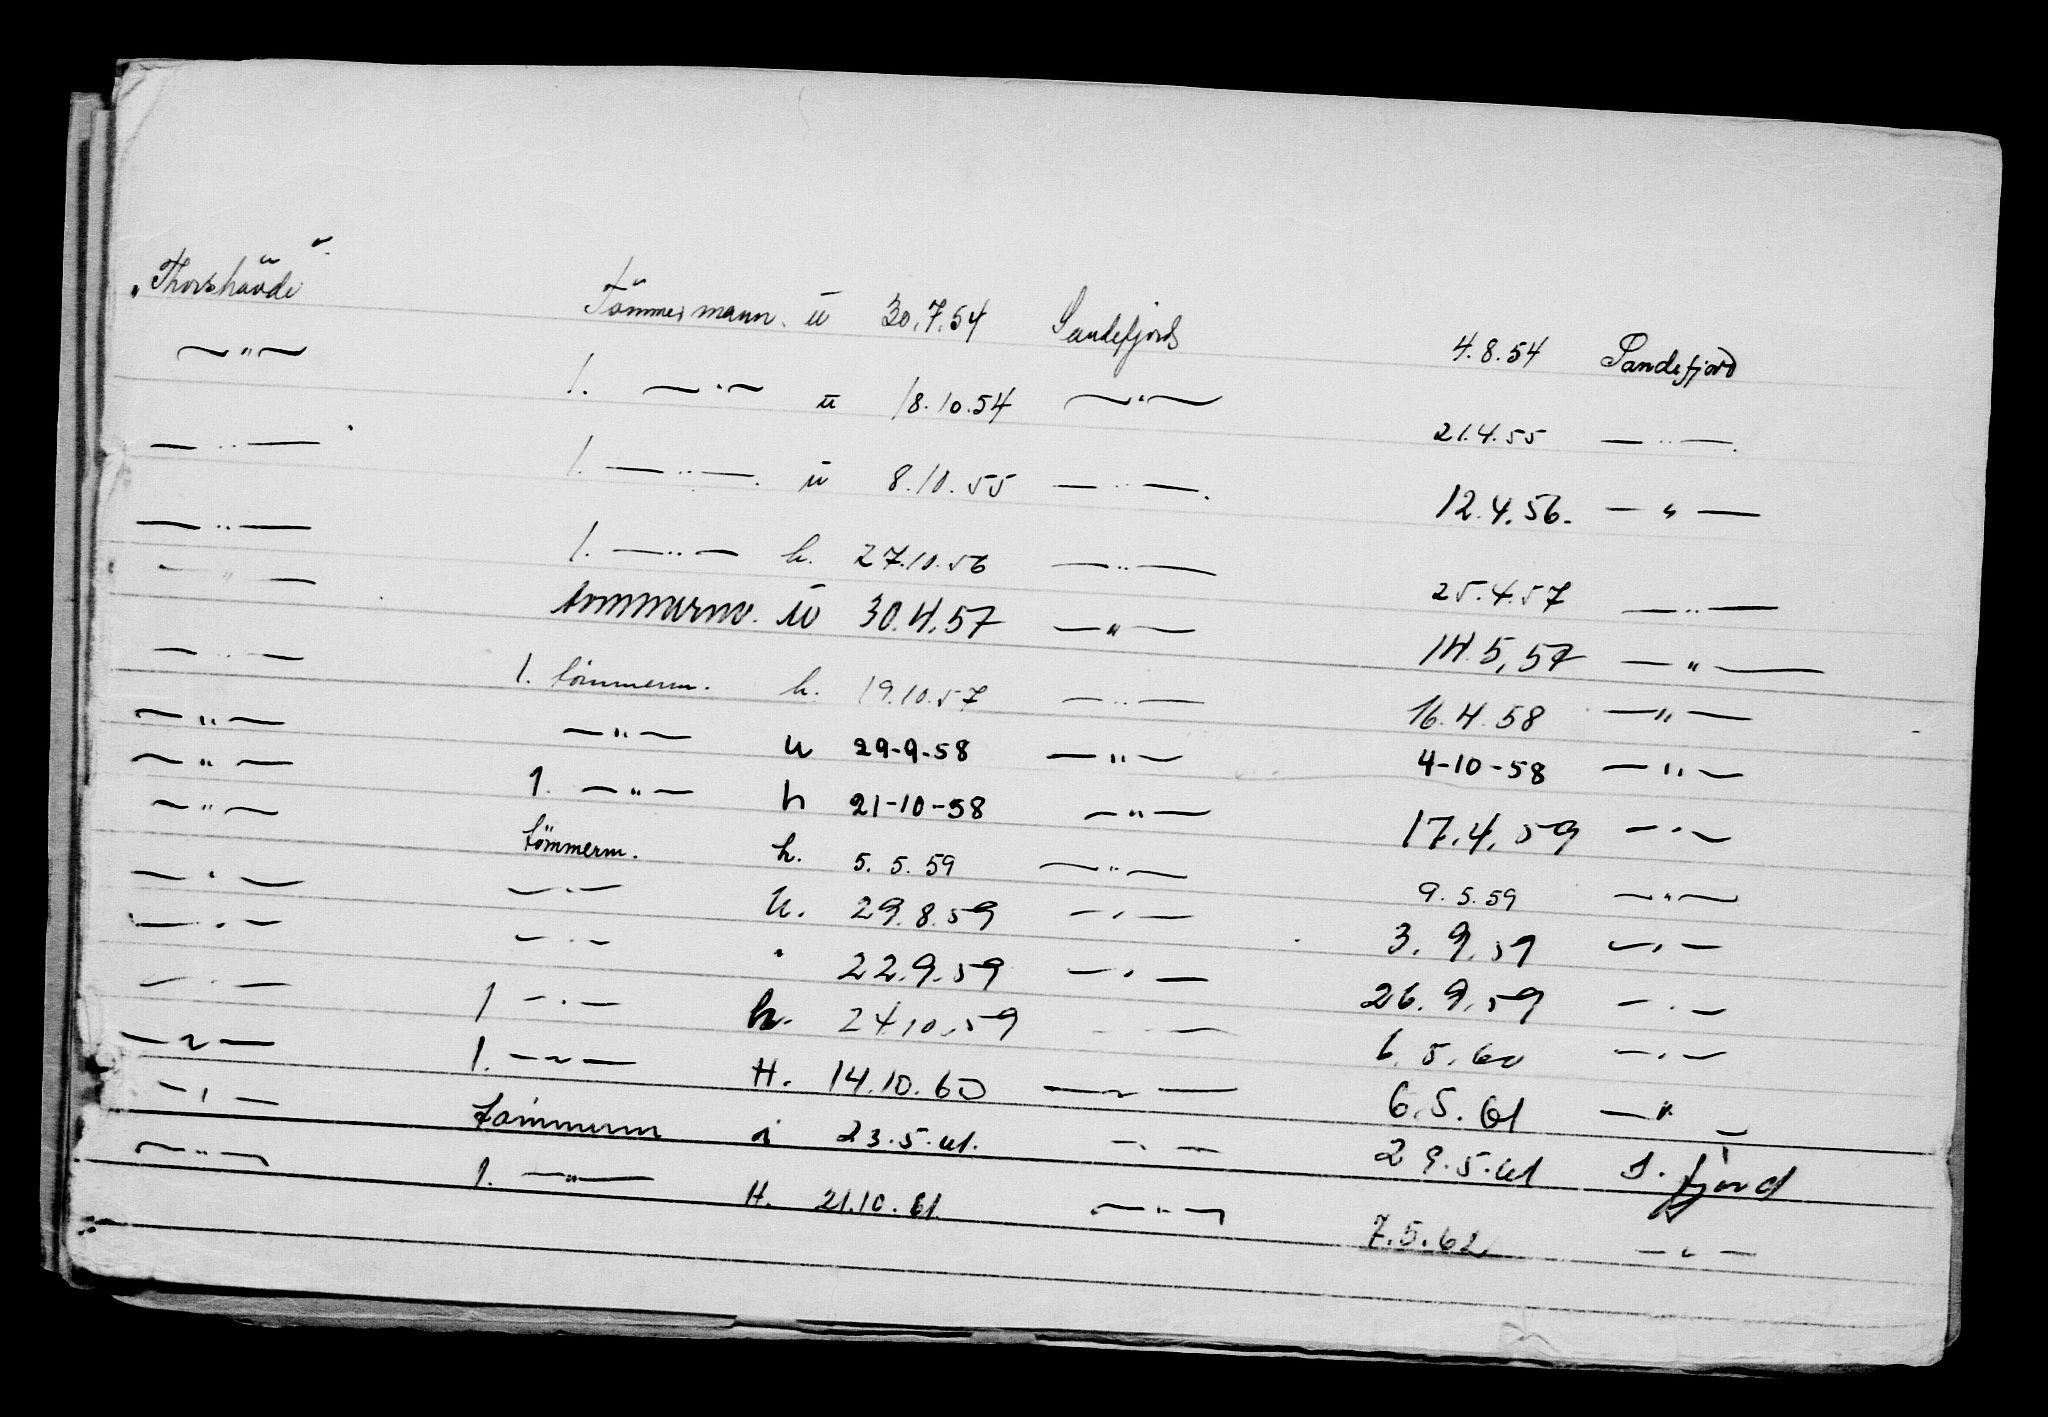 „Thorshövdi" Tömmermann. u 30.7.54 Sandefjord 4.8.54 Sandefjord
— " — 1. — " — u 18.10.54 — " — 21.4.55 — " —
— " — 1. — " — u 8.10.55 — " — 12.4.56. — " —
— " — 1. — " — h. 27.10.56 — " — 25.4.57 — " —
— " — tømmerm. u 30.4.57 — " — 14.5.57 — " —
— " — 1. tömmerm. h. 19.10.57 — " — 16.4.58 — " —
— " — — " — u 29-9-58 — " — 4-10-58 — " —
— " — 1. — " — h 21-10-58 — " — 17.4.59 — " —
— " — tömmerm. h. 5.5.59 — " — 9.5.59 — " —
— " — — " — u. 29.8.59 — " — 3.9.59 — " —
— " — — " — " 22.9.59 — " — 26.9.59 — " —
— " — 1 — " — h. 24.10.59 — " — 6.5.60 — " —
— " — 1. — " — H. 14.10.60 — " — 6.5.61 — " —
— " — tömmerm 23.5.61. — " — 29.5.61 S.fjord
— " — 1. — " — H. 21.10.61. — " — 7.5.62 — " —